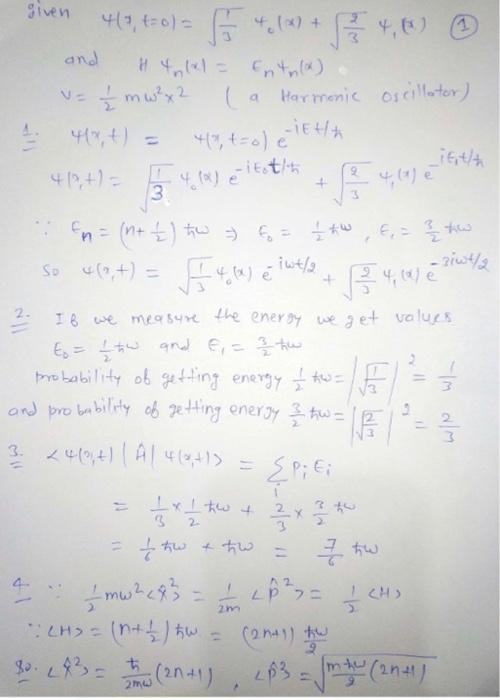 given ψ(x, t=0) = √(1/3) ψ₀(x) + √(2/3) ψ₁(x) ①
and H ψₙ(x) = Eₙψₙ(x)
V = 1/2 mω²x² ( a Harmonic oscillator)
1. ψ(x,t) = ψ(x, t=0) e^(-iEt/ħ)
ψ(x,t) = √(1/3) ψ₀(x) e^(-iE₀t/ħ) + √(2/3) ψ₁(x) e^(-iE₁t/ħ)
∵ Eₙ = (n+1/2) ħω ⇒ E₀ = 1/2 ħω, E₁ = 3/2 ħω
So ψ(x,t) = √(1/3) ψ₀(x) e^(-iωt/2) + √(2/3) ψ₁(x) e^(-3iωt/2)
2. If we measure the energy we get values
E₀ = 1/2 ħω and E₁ = 3/2 ħω
probability of getting energy 1/2 ħω = |√(1/3)|² = 1/3
and probability of getting energy 3/2 ħω = |√(2/3)|² = 2/3
3. <ψ(x,t) | Ĥ | ψ(x,t)> = Σᵢ Pᵢ Eᵢ
= 1/3 × 1/2 ħω + 2/3 × 3/2 ħω
= 1/6 ħω + ħω = 7/6 ħω
4. ∵ 1/2 mω² <x̂²> = 1/2m <p̂²> = 1/2 <H>
∵ <H> = (n+1/2) ħω = (2n+1) ħω/2
So. <x̂²> = ħ/2mω (2n+1), <p̂²> = √(mħω/2 (2n+1))